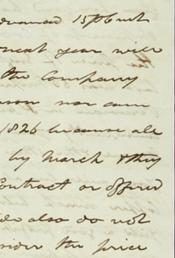 next year will
the Company
nor can
1826 because all
by March & they
Contract or offered
do also do not
under the price